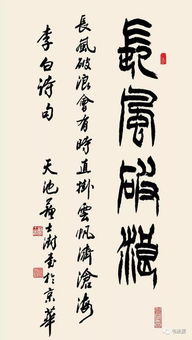 長風破浪
長風破浪會有時直掛雲帆濟滄海
李白诗句
天池蘇士澍書於京華